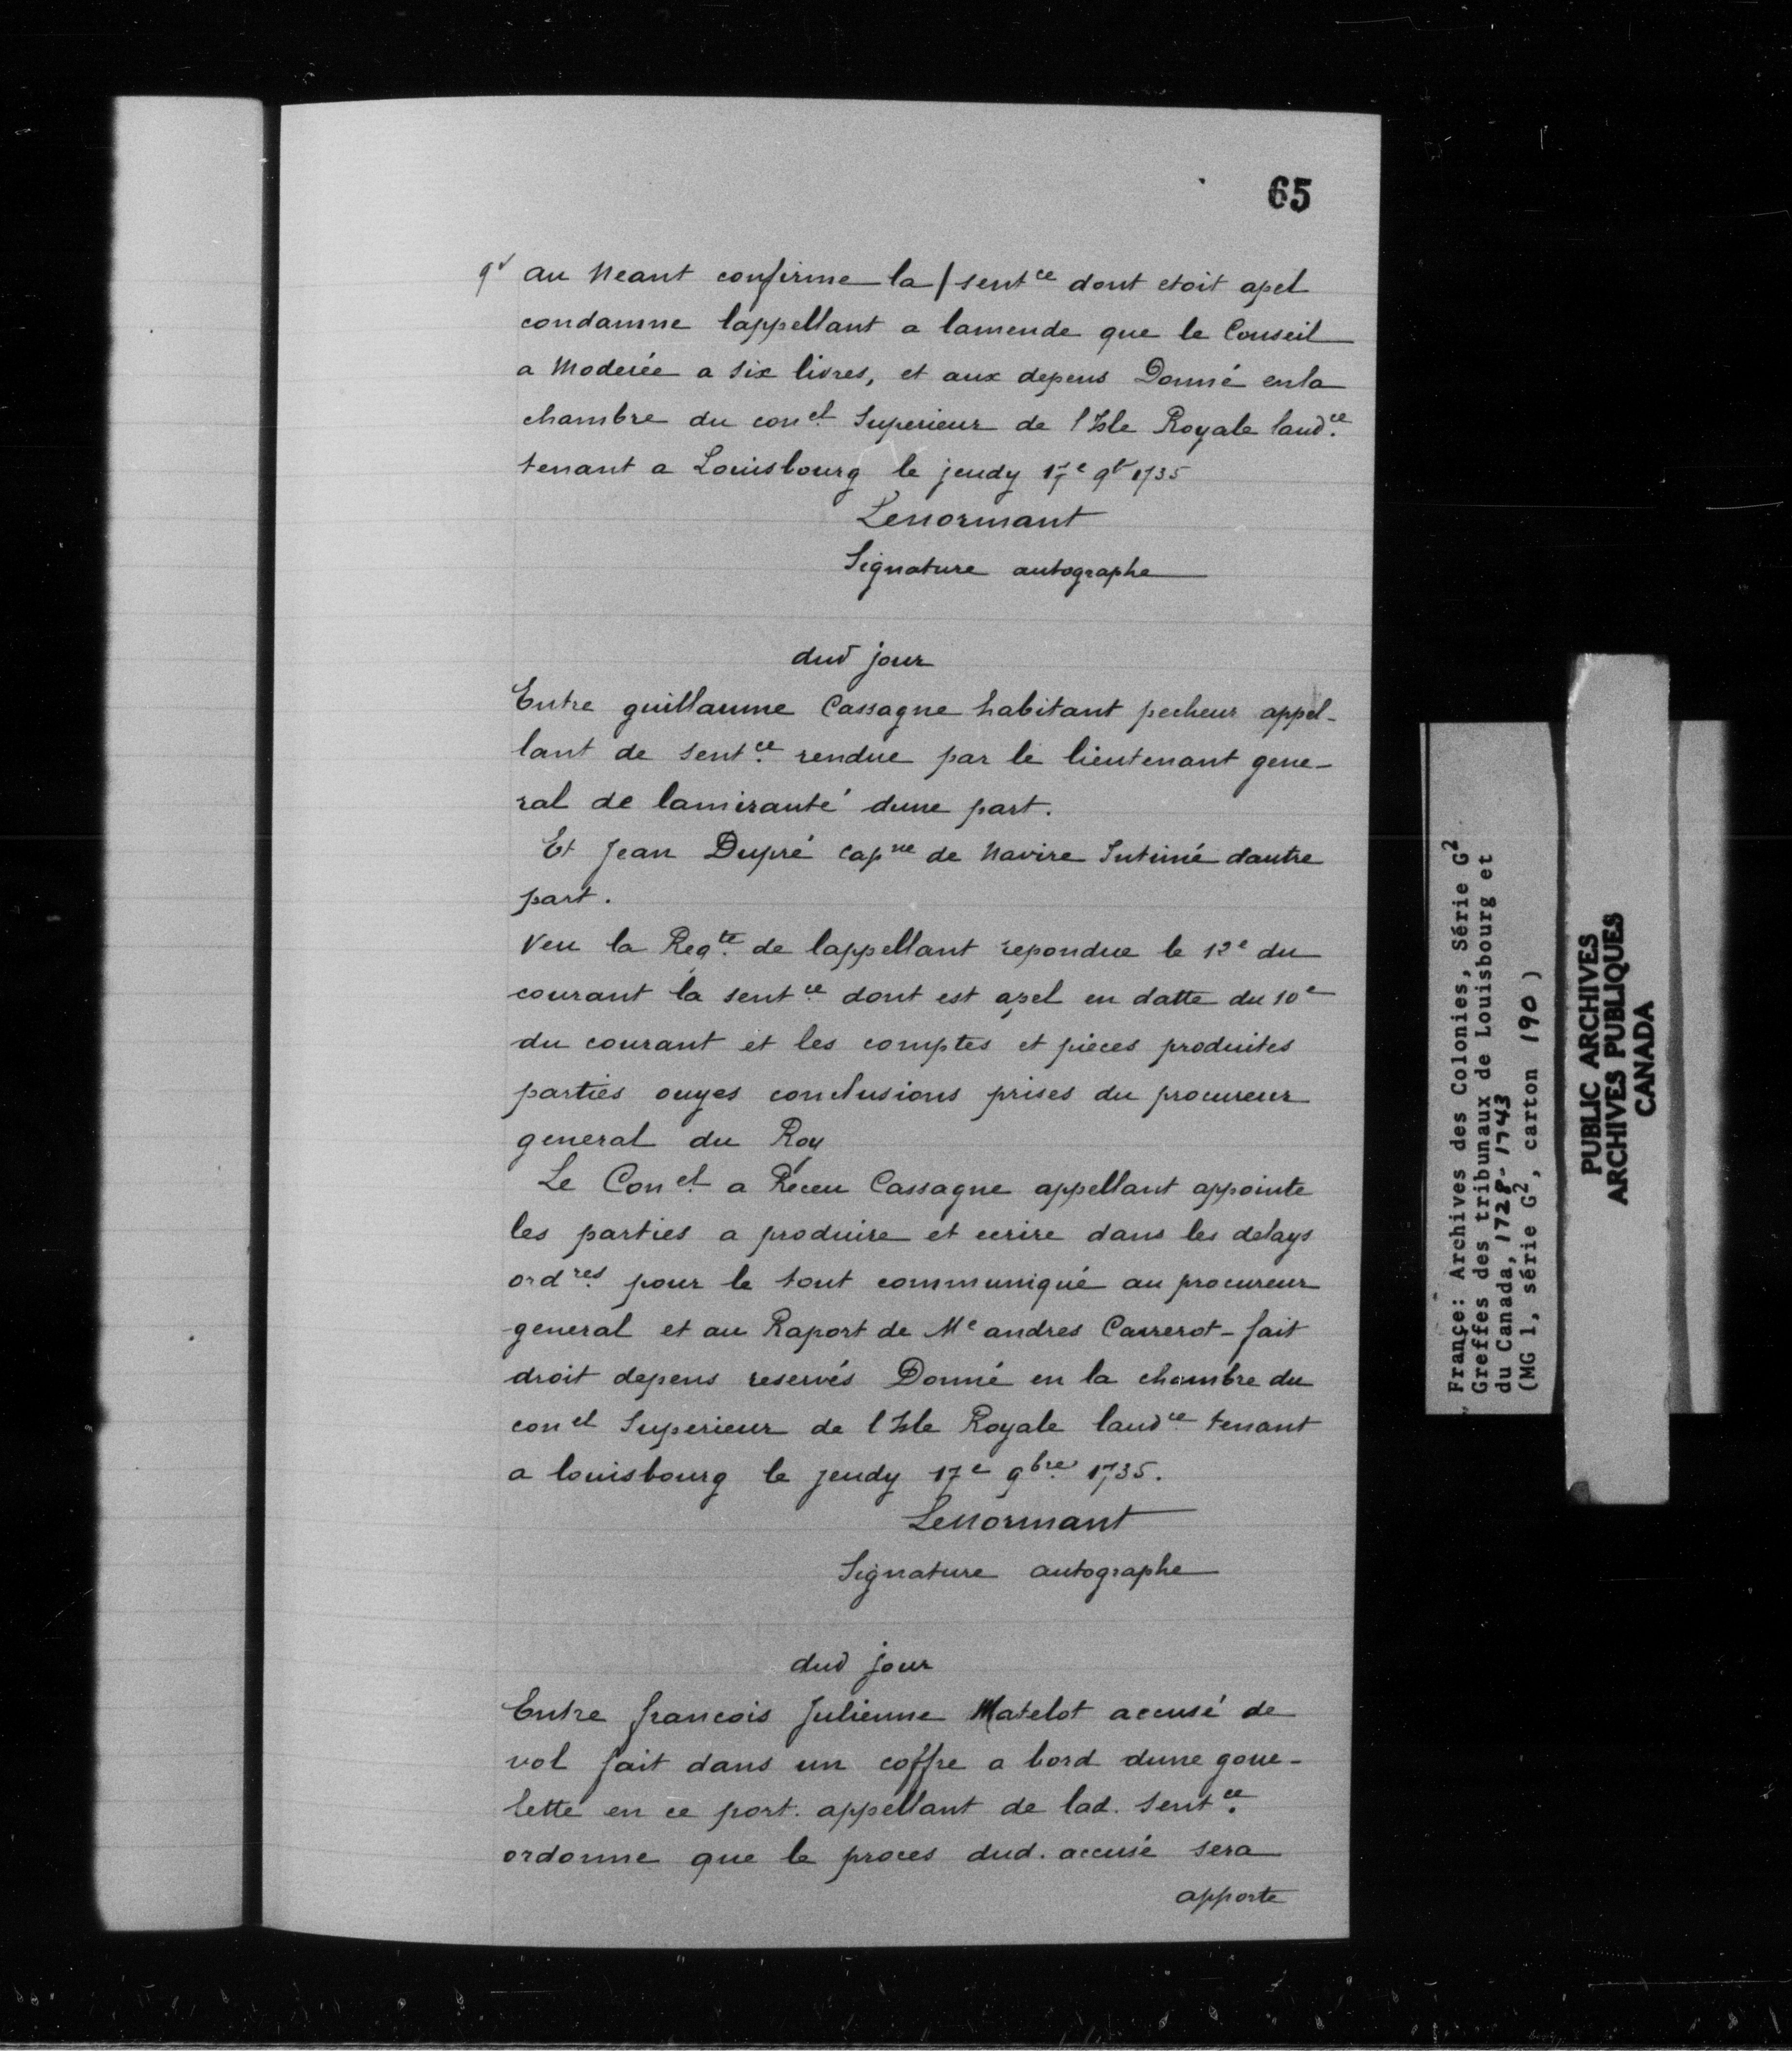 65
9v au Neant confirme la / sentce dont etoit apel
condamne lappellant a lamende que le Conseil
a Moderée a six livres, et aux depens Donné enla
chambre du conel Superieur de l'Isle Royale laudce
tenant a Louisbourg le jeudy 17e 9br 1735
Lenormant
Signature autographe
dud jour
Entre guillaume Cassagne habitant pecheur appel-
lant de sentce rendue par le lieutenant gene-
ral de lamirauté dune part.
Et Jean Dupré capne de Navire Intimé dautre
part.
Veu la Reqte de lappellant repondue le 12e du
courant la sentce dont est apel en datte du 10e
du courant et les comptes et pieces produites
parties ouyes conclusions prises du procureur
general du Roy
Le Conel a Receu Cassagne appellant appointe
les parties a produire et ecrire dans les delays
ordres pour le tout communiqué au procureur
general et au Raport de Me andres Carrerot - fait
droit depens reservés Donné en la chambre du
conel Superieur de l'Isle Royale laudce tenant
a louisbourg le jeudy 17e 9bre 1735.
Lenormant
Signature autographe
dud jour
Entre francois Julienne Matelot accusé de
vol fait dans un coffre a bord dune goue-
lette en ce port. appellant de lad. Sentce
ordonne que le proces dud. accusé sera
apporte
France: Archives des Colonies, Série G2
Greffes des tribunaux de Louisbourg et
du Canada, 1728-1743
(MG 1, série G2, carton 190)
PUBLIC ARCHIVES
ARCHIVES PUBLIQUES
CANADA